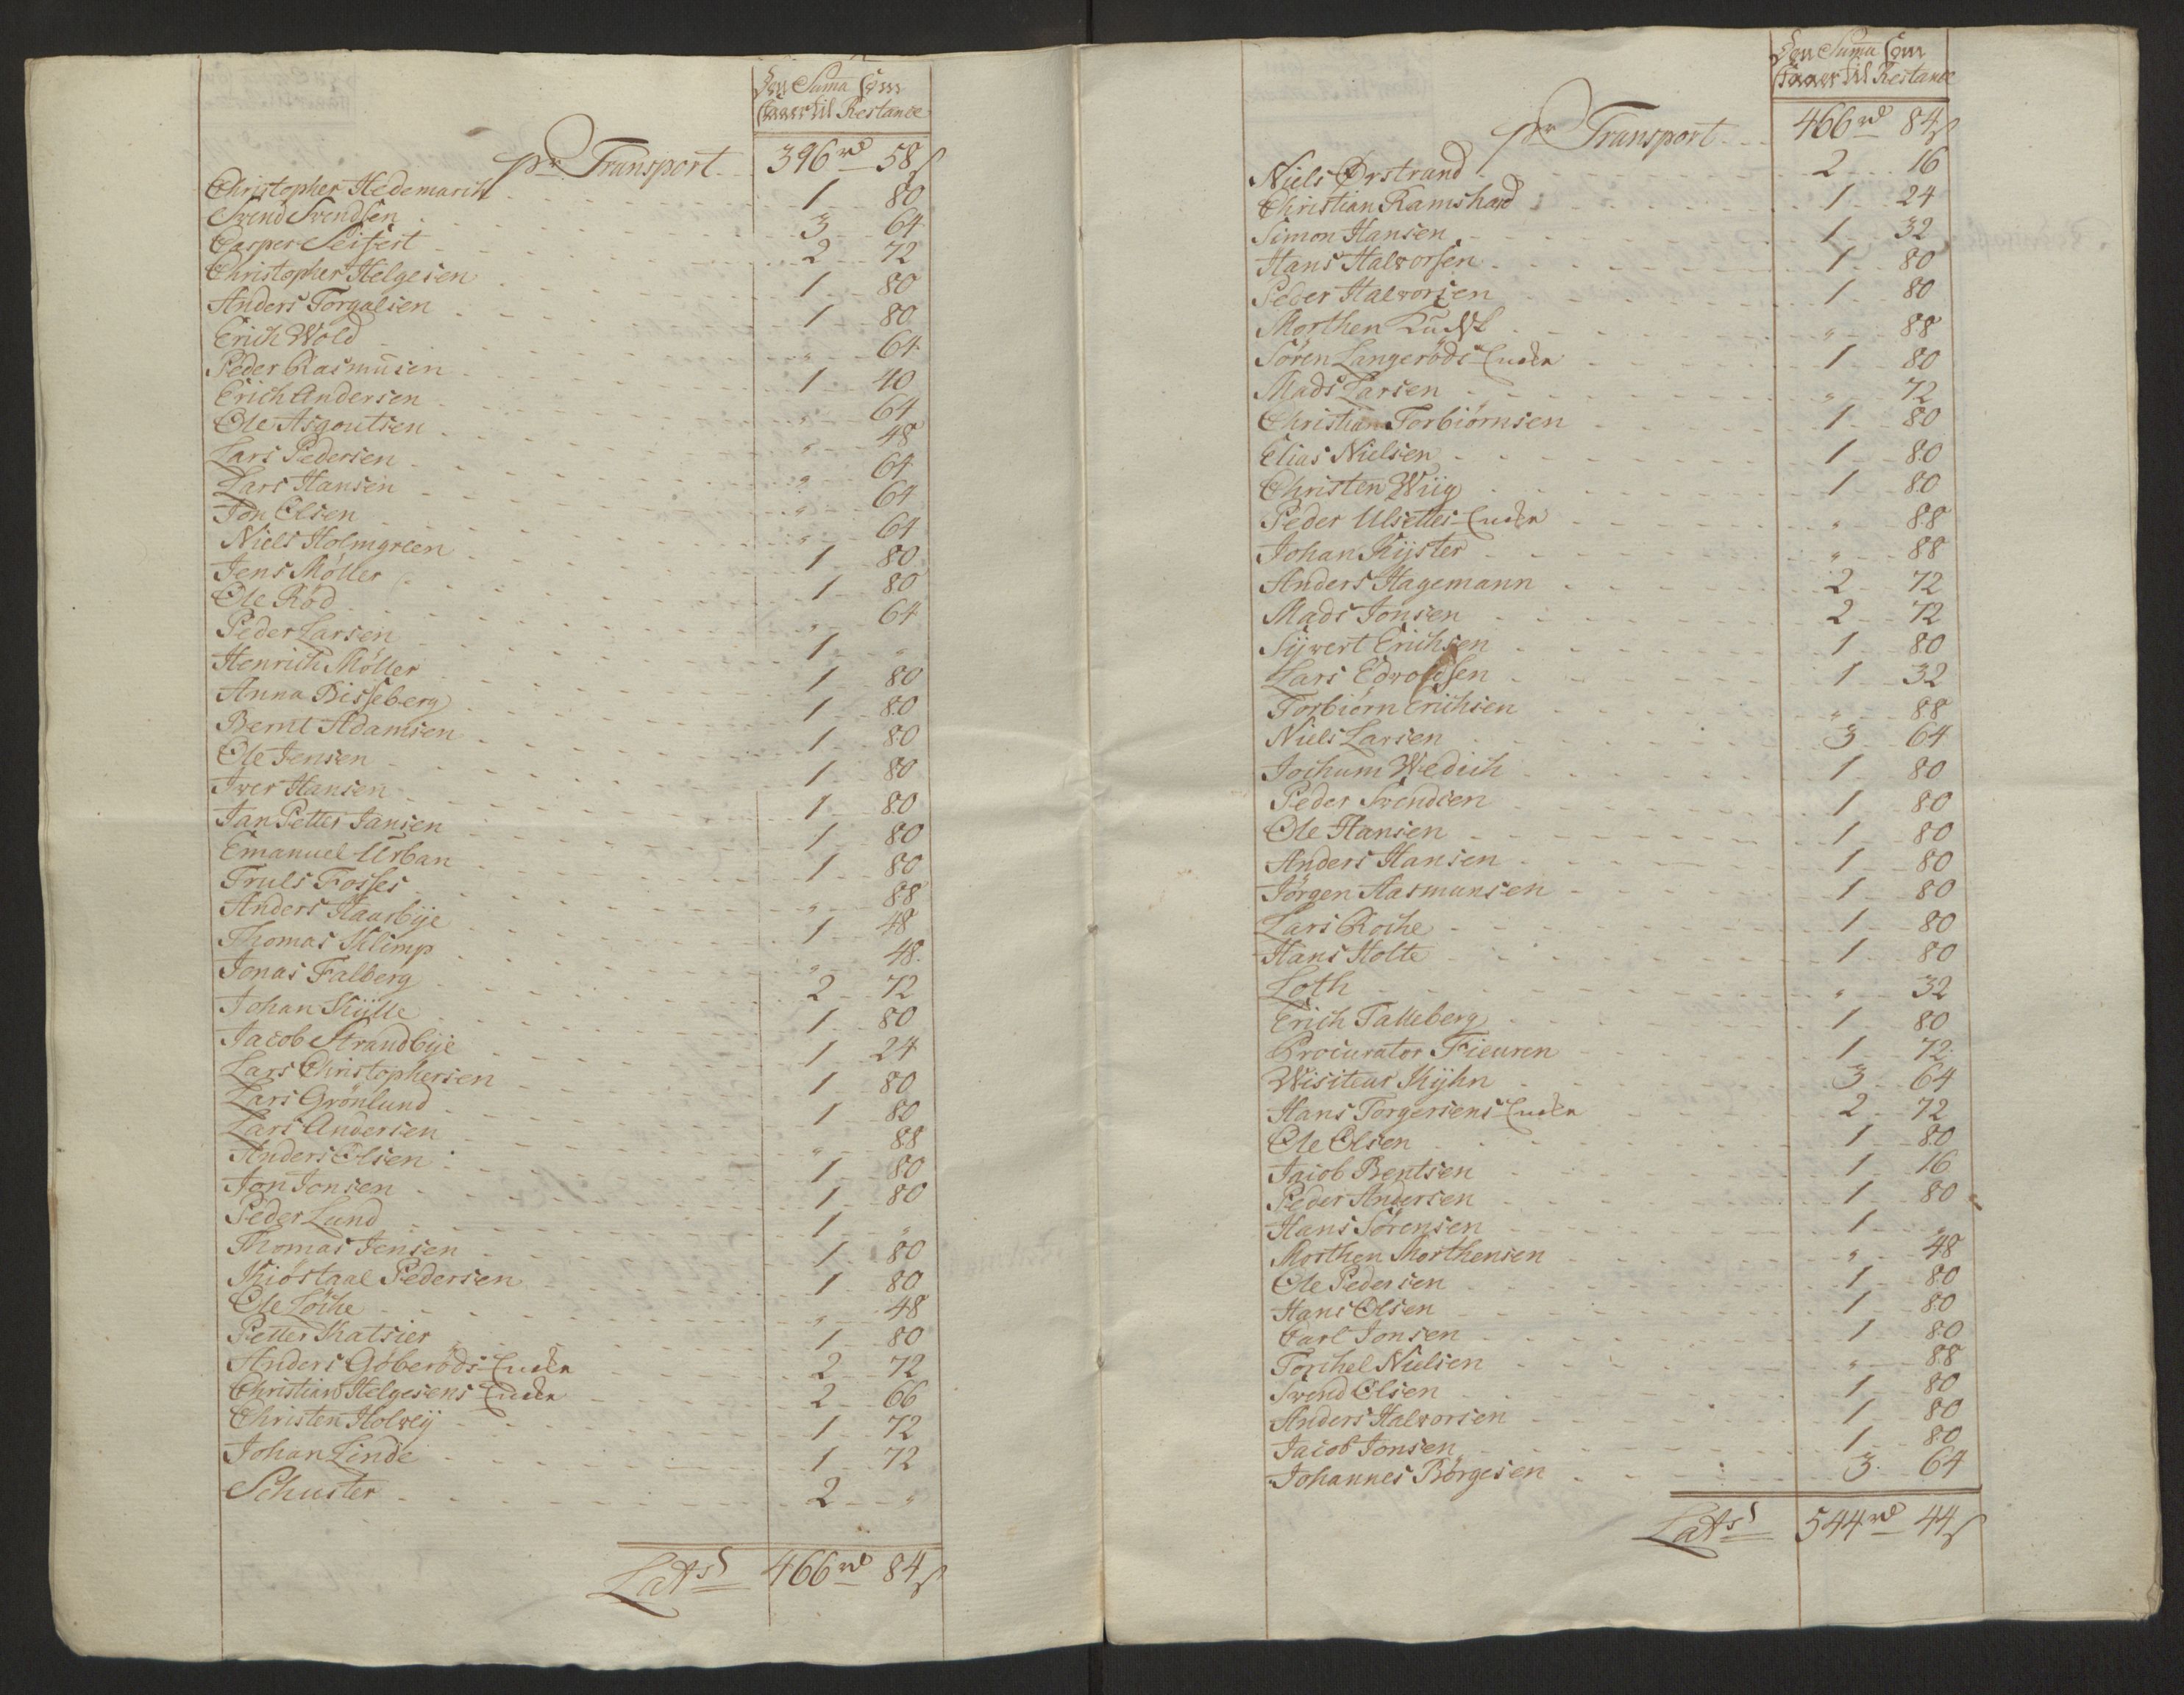 Den Suma som
staaer til Restance
pr Transport 396 rd 58 s
Christopher Hedemarck 1 80
Svend Svendsen 3 64
Casper Seifert 2 72
Christopher Helgesen 1 80
Anders Torgalsen 1 80
Erich Wold " 64
Peder Rasmusen 1 40
Erich Andersen " 64
Ole Asgoutsen " 48
Lars Pedersen " 64
Lars Hansen " 64
Jon Olsen " 64
Niels Holmgreen 1 80
Jens Møller 1 80
Ole Rød " 64
Peder Larsen 1 "
Henrich Møller 1 80
Anna Bisseberg 1 80
Bernt Adamsen 1 80
Ole Jensen 1 80
Iver Hansen 1 80
Jan Petter Jansen 1 80
Emanuel Urban 1 80
Truls Fosses " 88
Anders Haasbÿe 1 48
Thomas Klimp " 48
Jonas Falberg 2 72
Johan Kÿlle 1 80
Jacob Strandbÿe 1 24
Lars Christophersen 1 80
Lars Grönlund 1 80
Lars Andersen " 88
Anders Olsen 1 80
Jon Jonsen 1 80
Peder Lund 1 "
Thomas Jensen 1 80
Kiöstaal Pedersen 1 80
Ole Löche " 48
Petter Katsier 1 80
Anders Göberöds Encke 2 72
Christian Helgesens Encke 2 66
Christen Holveÿ 1 72
Johan Linde 1 72
Schuster 2 "
Lats 466 rd 84 s
Den Suma som
staaer til Restance
pr Transport 466 rd 84 s
Niels Ørstrand 2 16
Christian Ramshard 1 24
Simon Hansen 1 32
Hans Halvorsen 1 80
Peder Halvorsen 1 80
Morthen " 88
Sören Langeröds Encke 1 80
Mads Larsen " 72
Christian Torbiörnsen 1 80
Elias Nielsen 1 80
Christen Wiig 1 80
Peder Ulsettes Encke " 88
Johan Kÿster " 88
Anders Hagemann 2 72
Mads Jonsen 2 72
Sÿvert Erichsen 1 80
Lars 1 32
Torbiörn Erichsen " 88
Niels Larsen 3 64
Jochum Wedich 1 80
Peder Svendsen 1 80
Ole Hansen 1 80
Anders Hansen 1 80
Jörgen Aasmunsen 1 80
Lars Roche 1 80
Hans Holte 1 80
Loth " 32
Erich Talleberg 1 80
Procurator Fieuren 1 72
Wisiteur Kÿhn 3 64
Hans Torgersens Encke 2 72
Ole Olsen 1 80
Jacob Bentsen 1 16
Peder Andersen 1 80
Hans Sörensen 1 "
Morthen Morthensen " 48
Ole Pedersen 1 80
Hans Olsen 1 80
Carl Jonsen 1 80
Torchel Nielsen " 88
Svend Olsen 1 80
Anders Halvorsen 1 80
Jacob Jonsen 1 80
Johannes Börgesen 3 64
Lats 544 rd 44 s